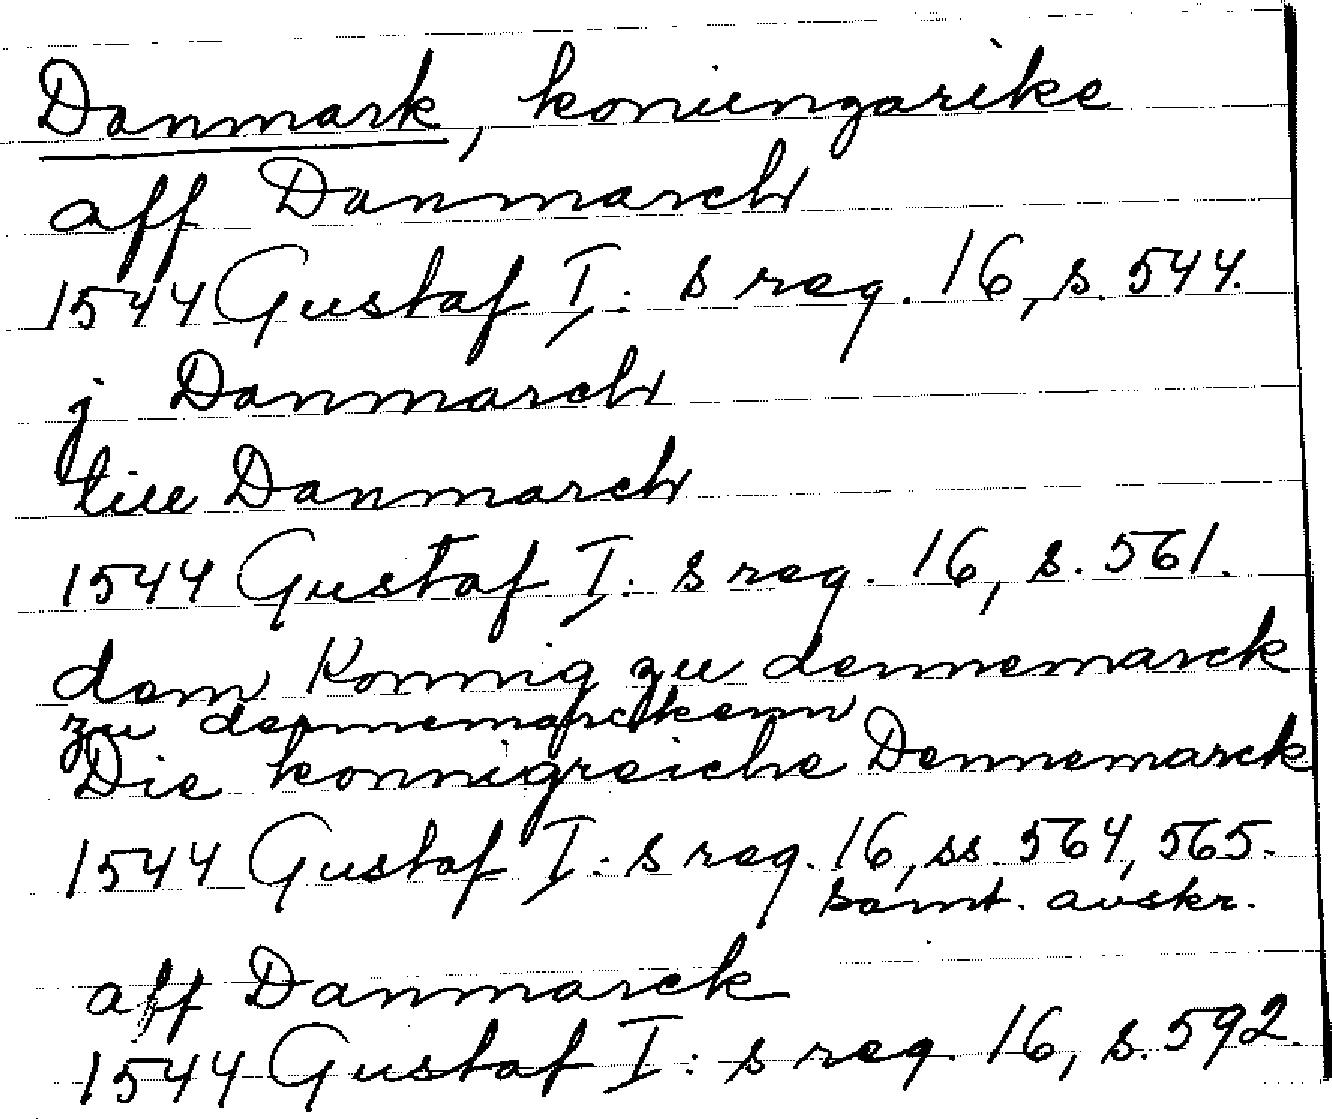 Danmark, konungarike
aff Danmarch
1544 Gustaf I: s reg. 16, s. 544.
j Danmarch
till Danmarch
1544 Gustaf I: s reg. 16, s. 561.
dem Konnig zu dennemarck
zu dennemarckenn
Die konnigreiche Dennemarck
1544 Gustaf I: s reg. 16, ss. 564, 565.
samt. avskr.
aff Danmarck
1544 Gustaf I: s reg. 16, s. 592.